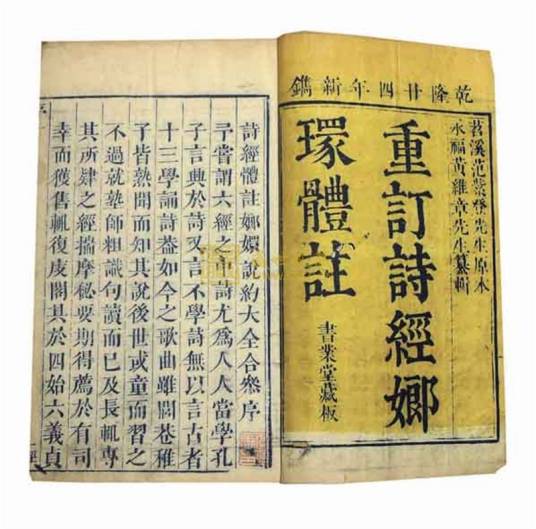 乾隆廿四年新鐫
苕溪范紫登先生原本
永福黃維章先生纂輯
重訂詩經嫏
環體註
書業堂藏板
詩經體註嫏嬛說約大全合叅序
予嘗謂六經之詩尤爲人人當學孔
子言興於詩又言不學詩無以言古者
十三學誦詩葢如今之歌曲雖閭巷稚
子皆熟聞而知其說後世或童而習之
不過就塾師粗識句讀而已及長輒專
其所肄之經揣摩秘要期得薦於有司
幸而獲售輒復庋閣其於四始六義貞